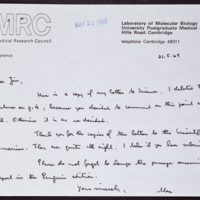 MRC
Medical Research Council
Laboratory of Molecular Biology
University Postgraduate Medical
Hills Road, Cambridge
telephone Cambridge 48011
MAY 23 1969
reference
22.5.69
Dear Jim,
Here is a copy of my letter to Science. I deleted the
on p.4, because you decided to comment on this point
Otherwise it is as we decided.
Thank you for the copies of the letters to the Scientific
American. They are quite all right. I take it you have submitted
Please do not forget to change the passage concerning
in the Penguin edition.
Yours sincerely,
Max